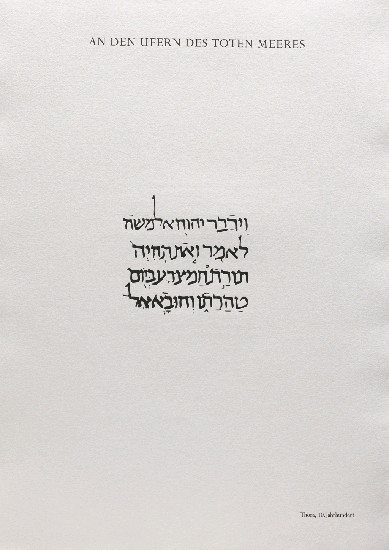 AN DEN UFERN DES TOTEN MEERES
וידבר יהוה אל משה
לאמר זאת תהיה
תורת המצרע ביום
טהרתו והובא אל
Thora, 10. Jahrhundert